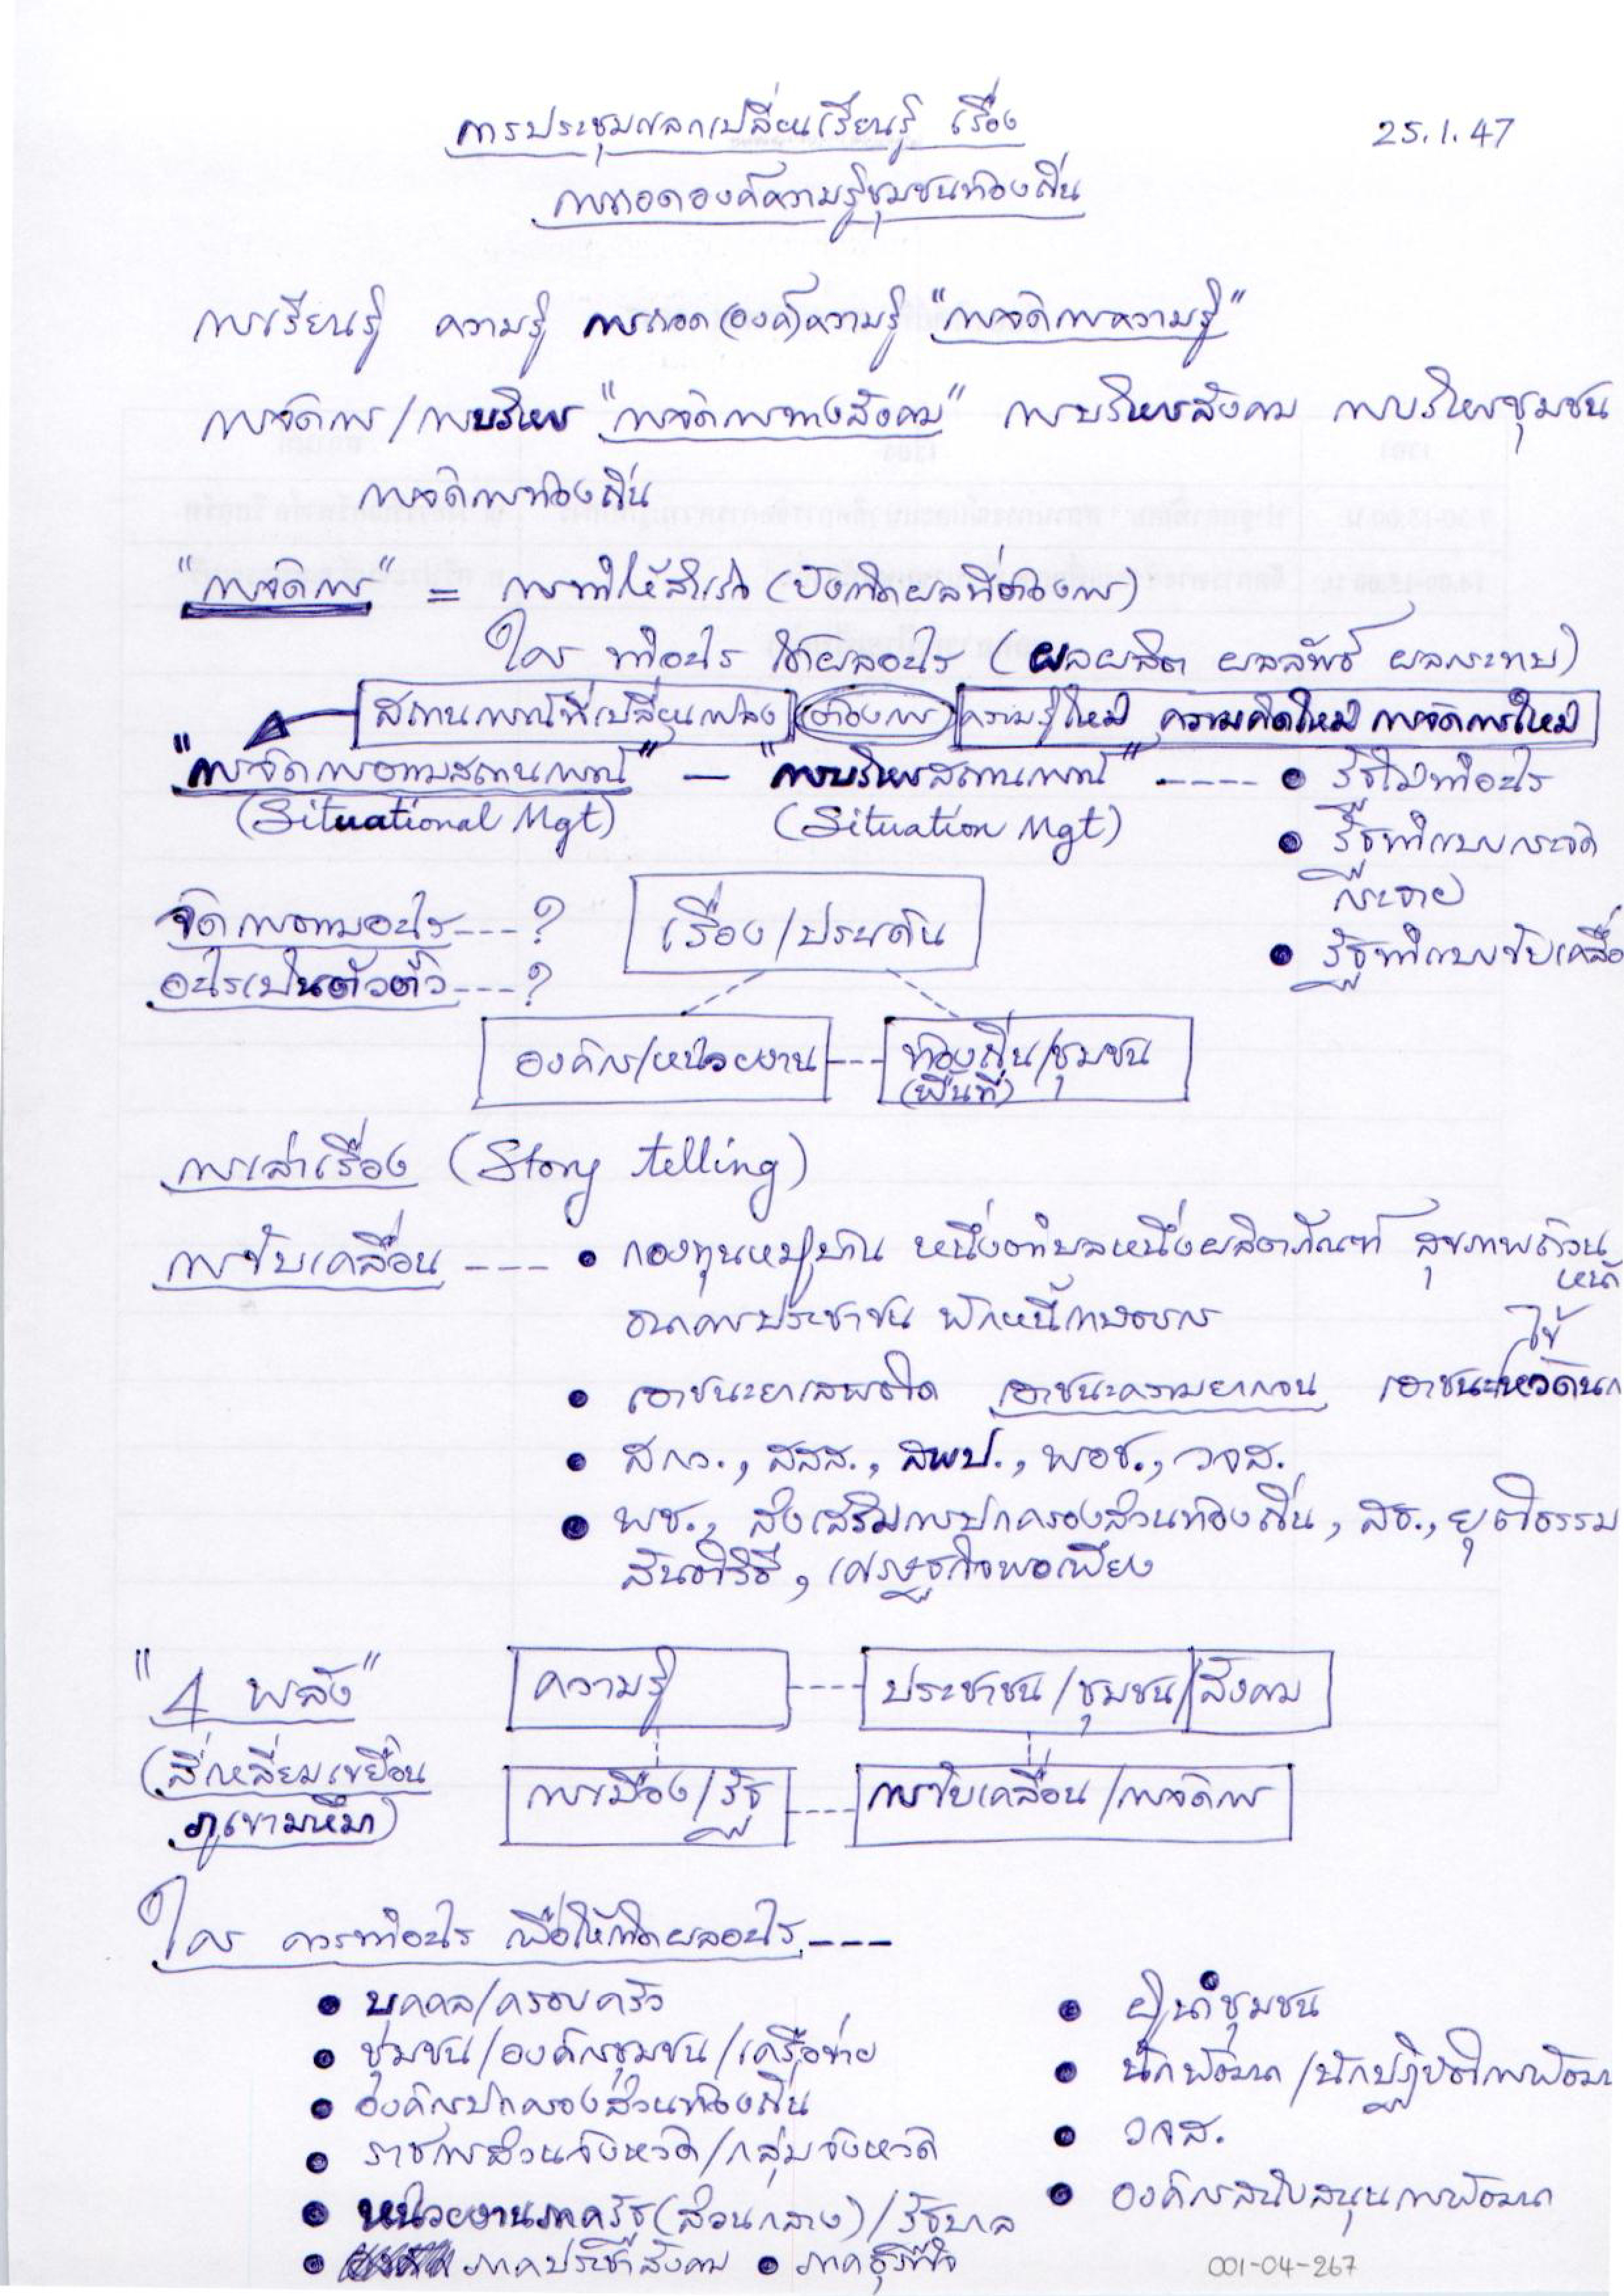 การประชุมแลกเปลี่ยนเรียนรู้ เรื่อง
25.1.47
การถอดองค์ความรู้ชุมชนท้องถิ่น
การเรียนรู้ ความรู้ การถอด(องค์)ความรู้ "การจัดการความรู้"
การจัดการ/การบริหาร "การจัดการทางสังคม" การบริหารสังคม การบริหารชุมชน
การจัดการท้องถิ่น
"การจัดการ" = การทำให้สำเร็จ (ยังเกิดผลที่ต้องการ)
ใคร ทำอะไร ได้ผลอะไร (ผลผลิต ผลลัพธ์ ผลกระทบ)
สถานการณ์ที่เปลี่ยนแปลง ต้องการ ความรู้ใหม่ ความคิดใหม่ การจัดการใหม่
"การจัดการตามสถานการณ์" — "การบริหารสถานการณ์" ----- • รัฐไม่ทำอะไร
(Situational Mgt) (Situation Mgt)
• รัฐทำแบบกระจัดกระจาย
จัดการตามอะไร---? เรื่อง/ประเด็น
• รัฐทำแบบขับเคลื่อ
อะไรเป็นตัวตั้ง---?
องค์กร/หน่วยงาน --- ท้องถิ่น/ชุมชน
(พื้นที่)
การเล่าเรื่อง (Story telling)
การขับเคลื่อน --- • กองทุนหมู่บ้าน หนึ่งตำบลหนึ่งผลิตภัณฑ์ สุขภาพถ้วนหน้า
ธนาคารประชาชน พักหนี้เกษตรกร
• เอาชนะยาเสพติด เอาชนะความยากจน เอาชนะไข้หวัดนก
• สกว., สสส., สพป., พอช., วจส.
• พช., ส่งเสริมการปกครองส่วนท้องถิ่น, สธ., ยุติธรรม
สันติวิธี, เศรษฐกิจพอเพียง
"4 พลัง" ความรู้ ---- ประชาชน/ชุมชน/สังคม
(สี่เหลี่ยมเขยื้อน
ภูเขามหึมา) การเมือง/รัฐ ---- การขับเคลื่อน/การจัดการ
ใคร ควรทำอะไร เพื่อให้เกิดผลอะไร---
• บุคคล/ครอบครัว
• ผู้นำชุมชน
• ชุมชน/องค์กรชุมชน/เครือข่าย
• นักพัฒนา/นักปฏิบัติการพัฒนา
• องค์กรปกครองส่วนท้องถิ่น
• วจส.
• ราชการส่วนจังหวัด/กลุ่มจังหวัด
• องค์กรสนับสนุนการพัฒนา
• หน่วยงานภาครัฐ(ส่วนกลาง)/รัฐบาล
• ภาคประชาสังคม • ภาคธุรกิจ
001-04-267